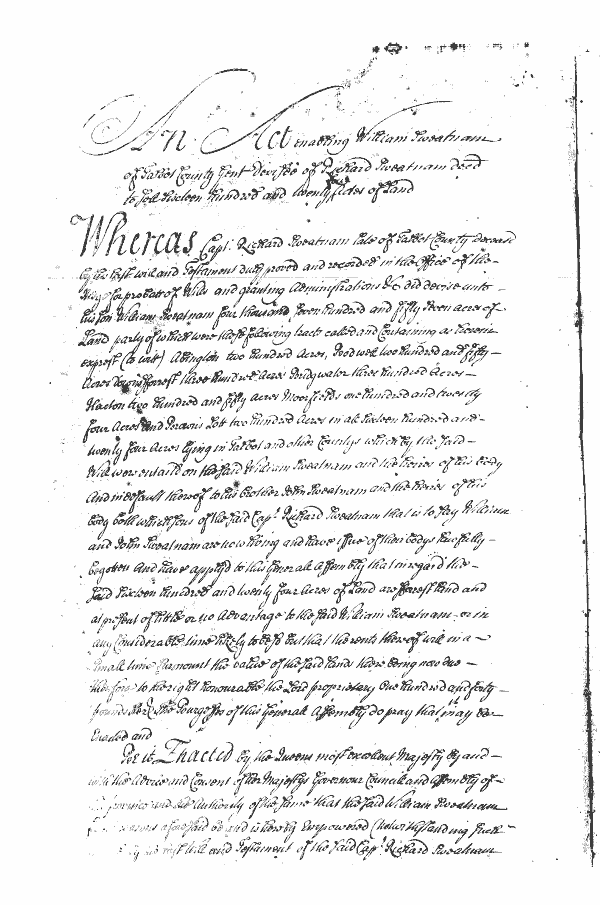 An Act enabling William Sweatnam
of Talbot County Gent Devisee of Richard Sweatnam deced
to sell sixteen Hundred and twenty Acres of Land
Whereas Capt. Richard Sweatnam late of Talbot County deceased
by his last will and Testament duly proved and recorded in the Office of the
for probate of Wills and granting Administrations &c did devise unto
his son William Sweatnam four thousand seven hundred and fifty seven acres of
Land party of which were the following tracts called and Containing as herein
exprest (to wit) Abington two hundred Acres, two hundred and fifty
Acres Forrest three hundred Acres Bridgwater three hundred acres
two hundred and fifty acres Moorfields one hundred and twenty
four Acres and Lott two hundred Acres in all sixteen hundred and
twenty four Acres lying in Talbot and other Countys which by the said
Will were entaild on the said William Sweatnam and the heires of his body
And in default thereof to his brother John Sweatnam and the heires of his
body both which sons of the said Capt. Richard Sweatnam that is to say William
and John Sweatnam are now living and have issue of their bodys lawfully
begotten And have applyd to this Generall Assembly that in regard the
said sixteen hundred and twenty four Acres of Land are fforrest land and
at present of little or no Advantage to the said William Sweatnam or in
any Considerable time likely to be so but that the rents thereof will in a
small time surmount the value of the said land there being now due
therefore to the right honourable the Lord proprietary One hundred and forty
pounds The Burgesses of this Generall Assembly do pray that it may be
Enacted and
Be it Enacted by the Queens most excellent Majesty by and
with the Advice and Consent of her Majestys Governour Councill and Assembly of
province and the Authority of the same that the said William Sweatnam
aforesaid be and is hereby Empowered (notwithstanding such
last will and Testament of the said Capt. Richard Sweatnam